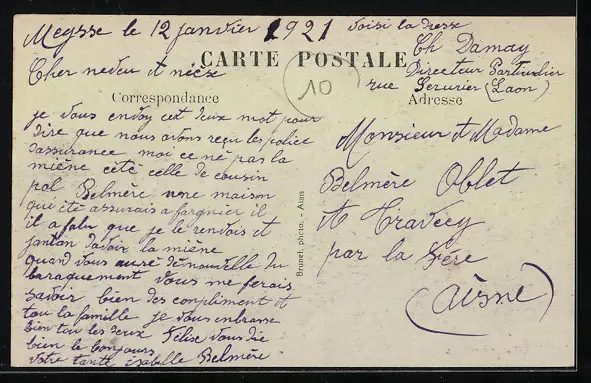 Meysse le 12 janvier 1921
voisi la dresse
Ch Damay
Directeur Particulier
rue Serurier (Laon)
CARTE POSTALE
10
Cher neveu et niése
Correspondance
Adresse
je vous envoy cet deux mot pour
dire que nous avons reçu les police
dassurance moi ce né pas la
miène cété celle de cousin
pol Belmère une maison
qui été assurais a fargnier il
il a falu que je le rendois et
jantan davoir la miène
quand vous auré dé nouvelle du
baraquement vous me ferais
savoir bien des compliment et
tou la famille je vous enbrasse
bien tou les deux Félise vous die
bien le bonjour
votre tante isabelle Belmère
Brunel, photo. - Alais
Monsieur et Madame
Belmère Oblet
et Travecy
par la Fère
(aisne)